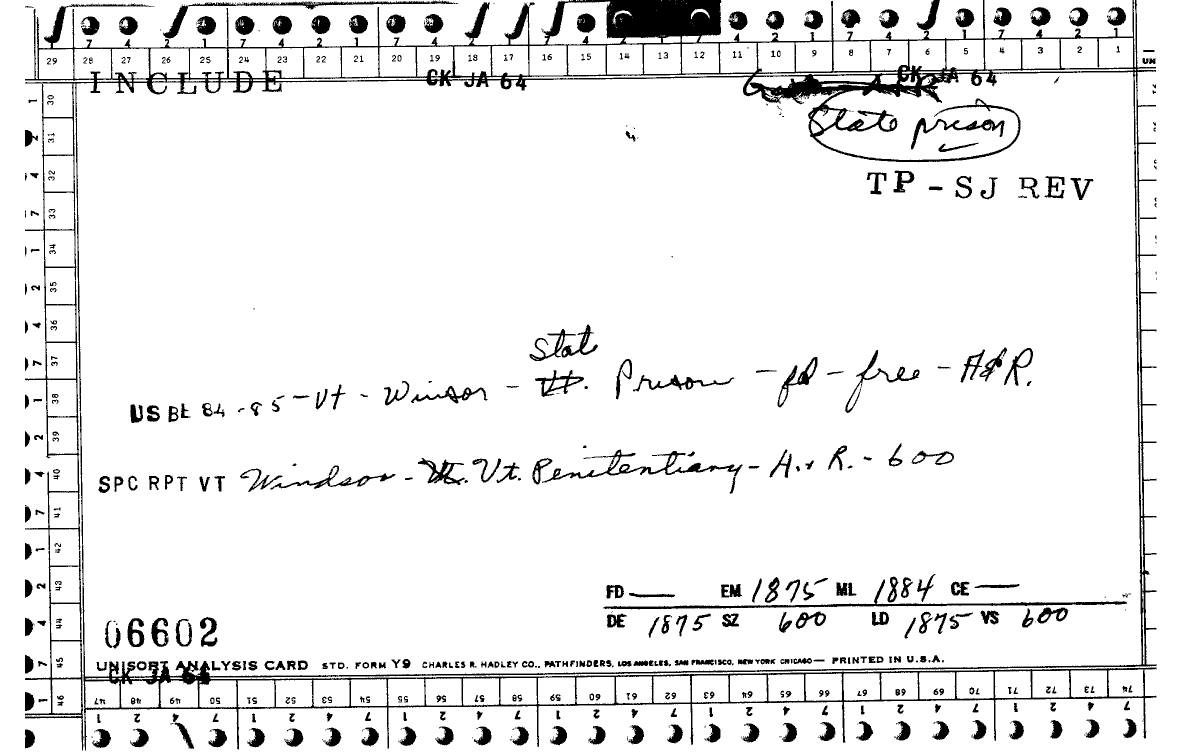 7 4 2 1 7 4 2 1 7 4 2 1 7 4 2 1 7 4 2 1 7 4 2 1
29 28 27 26 25 24 23 22 21 20 19 18 17 16 15 14 13 12 11 10 9 8 7 6 5 4 3 2 1
INCLUDE CK JA 64 CK JA 64
State prison
TP - SJ REV
State
US BE 84-85 - Vt - Winsor - Vt. Prison - fd - free - A&R.
SPC RPT VT Windsor - Vt. Vt. Penitentiary - A. & R. - 600
FD — EM 1875 ML 1884 CE —
DE 1875 SZ 600 LD 1875 VS 600
06602
UNISORT ANALYSIS CARD STD. FORM Y9 CHARLES R. HADLEY CO., PATHFINDERS, LOS ANGELES, SAN FRANCISCO, NEW YORK CHICAGO — PRINTED IN U.S.A.
CK JA 64
30 31 32 33 34 35 36 37 38 39 40 41 42 43 44 45 46
47 48 49 50 51 52 53 54 55 56 57 58 59 60 61 62 63 64 65 66 67 68 69 70 71 72 73 74
1 2 4 7 1 2 4 7 1 2 4 7 1 2 4 7 1 2 4 7 1 2 4 7 1 2 4 7